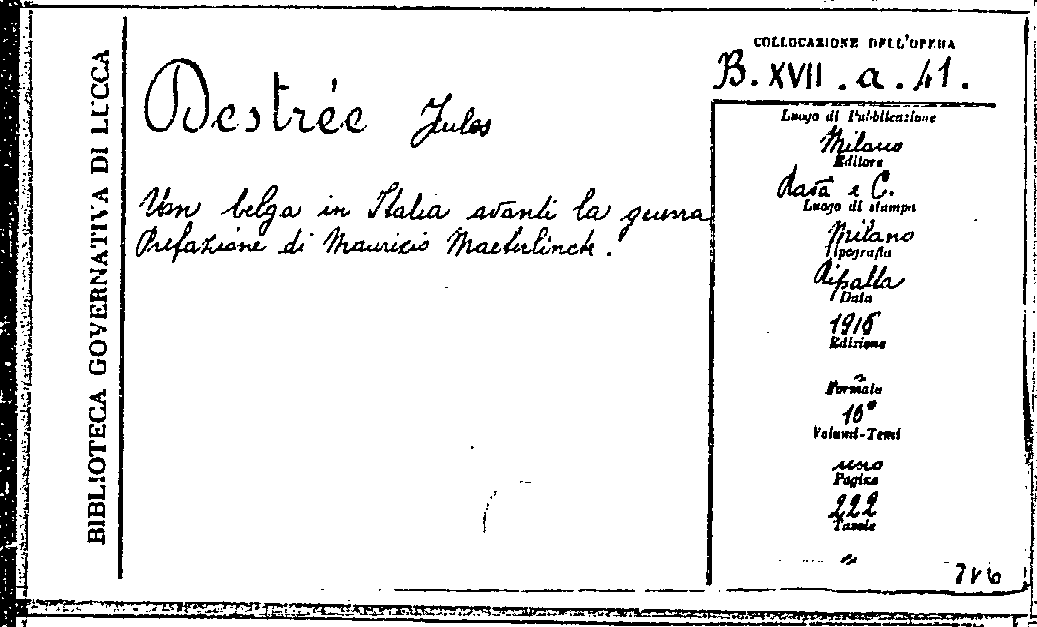 BIBLIOTECA GOVERNATIVA DI LUCCA
Destrée Jules
Un belga in Italia avanti la guerra
Prefazione di Mauricio Maeterlinck.
COLLOCAZIONE DELL'OPERA
B. XVII . a . 41.
Luogo di Pubblicazione
Milano
Editore
Ravà e C.
Luogo di stampa
Milano
Tipografia
Ripalta
Data
1915
Edizione
~
Formato
16°
Volumi-Tomi
uno
Pagine
222
Tavole
~